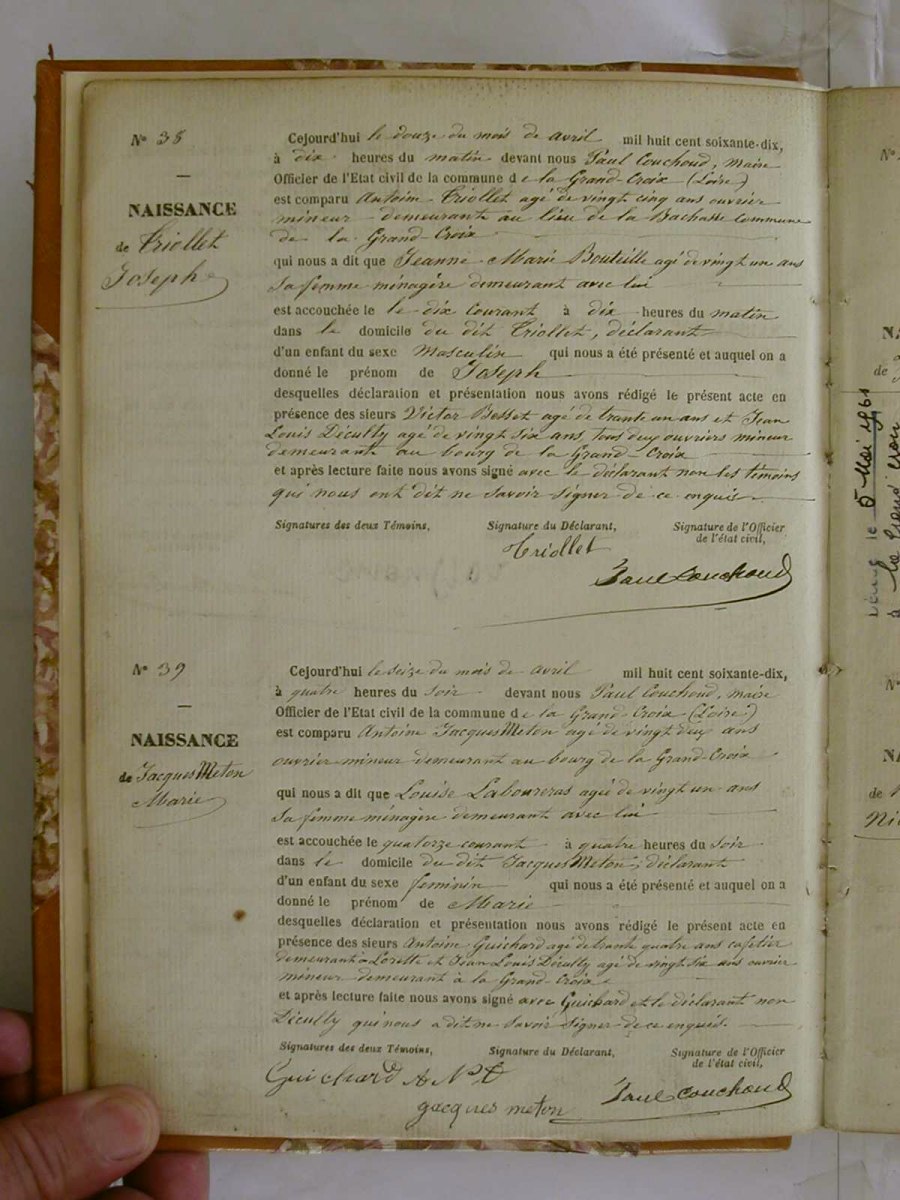 N° 38
NAISSANCE
de Triollet
Joseph
Cejourd'hui le douze du mois de avril mil huit cent soixante-dix,
à dix heures du matin devant nous Paul Couchoud, maire
Officier de l'Etat civil de la commune de la Grand-Croix (Loire)
est comparu Antoine Triollet agé de vingt cinq ans ouvrier
mineur demeurant au lieu de la Bachasse commune
de la Grand-Croix
qui nous a dit que Jeanne Marie Bouteille agé de vingt un ans
sa femme ménagère demeurant avec lui
est accouchée le le dix courant à dix heures du matin
dans le domicile du dit Triollet, déclarant
d'un enfant du sexe Masculin qui nous a été présenté et auquel on a
donné le prénom de Joseph
desquelles déclaration et présentation nous avons rédigé le présent acte en
présence des sieurs Victor Besset agé de trante un ans et Jean
Louis Décully agé de vingt six ans, tous deux ouvriers mineur
demeurants au bourg de la Grand-Croix
et après lecture faite nous avons signé avec le déclarant non les témoins
qui nous ont dit ne savoir signer de ce enquis
Signatures des deux Témoins, Signature du Déclarant, Signature de l'Officier
de l'état civil,
Triollet
Paul Couchoud
N° 39
NAISSANCE
de JacquesMeton
Marie
Cejourd'hui le seize du mois de avril mil huit cent soixante-dix,
à quatre heures du soir devant nous Paul Couchoud, maire
Officier de l'Etat civil de la commune de la Grand-Croix (Loire)
est comparu Antoine JacquesMeton agé de vingt deux ans
ouvrier mineur demeurant au bourg de la Grand-Croix
qui nous a dit que Louise Laboureras agée de vingt un ans
sa femme ménagère demeurant avec lui
est accouchée le quatorze courant à quatre heures du soir
dans le domicile du dit JacquesMeton, déclarant
d'un enfant du sexe feminin qui nous a été présenté et auquel on a
donné le prénom de Marie
desquelles déclaration et présentation nous avons rédigé le présent acte en
présence des sieurs Antoine Guichard agé de trante quatre ans cafetier
demeurant à Lorette et Jean Louis Décully agé de vingt six ans ouvrier
mineur demeurant à la Grand-Croix
et après lecture faite nous avons signé avec Guichard et le déclarant non
Décully qui nous a dit ne savoir signer de ce enquis.
Signatures des deux Témoins, Signature du Déclarant, Signature de l'Officier
de l'état civil,
Guichard
jacques meton
Paul Couchoud
N°
de
le 5 Mai 1961
à la Grand Croix
N°
de